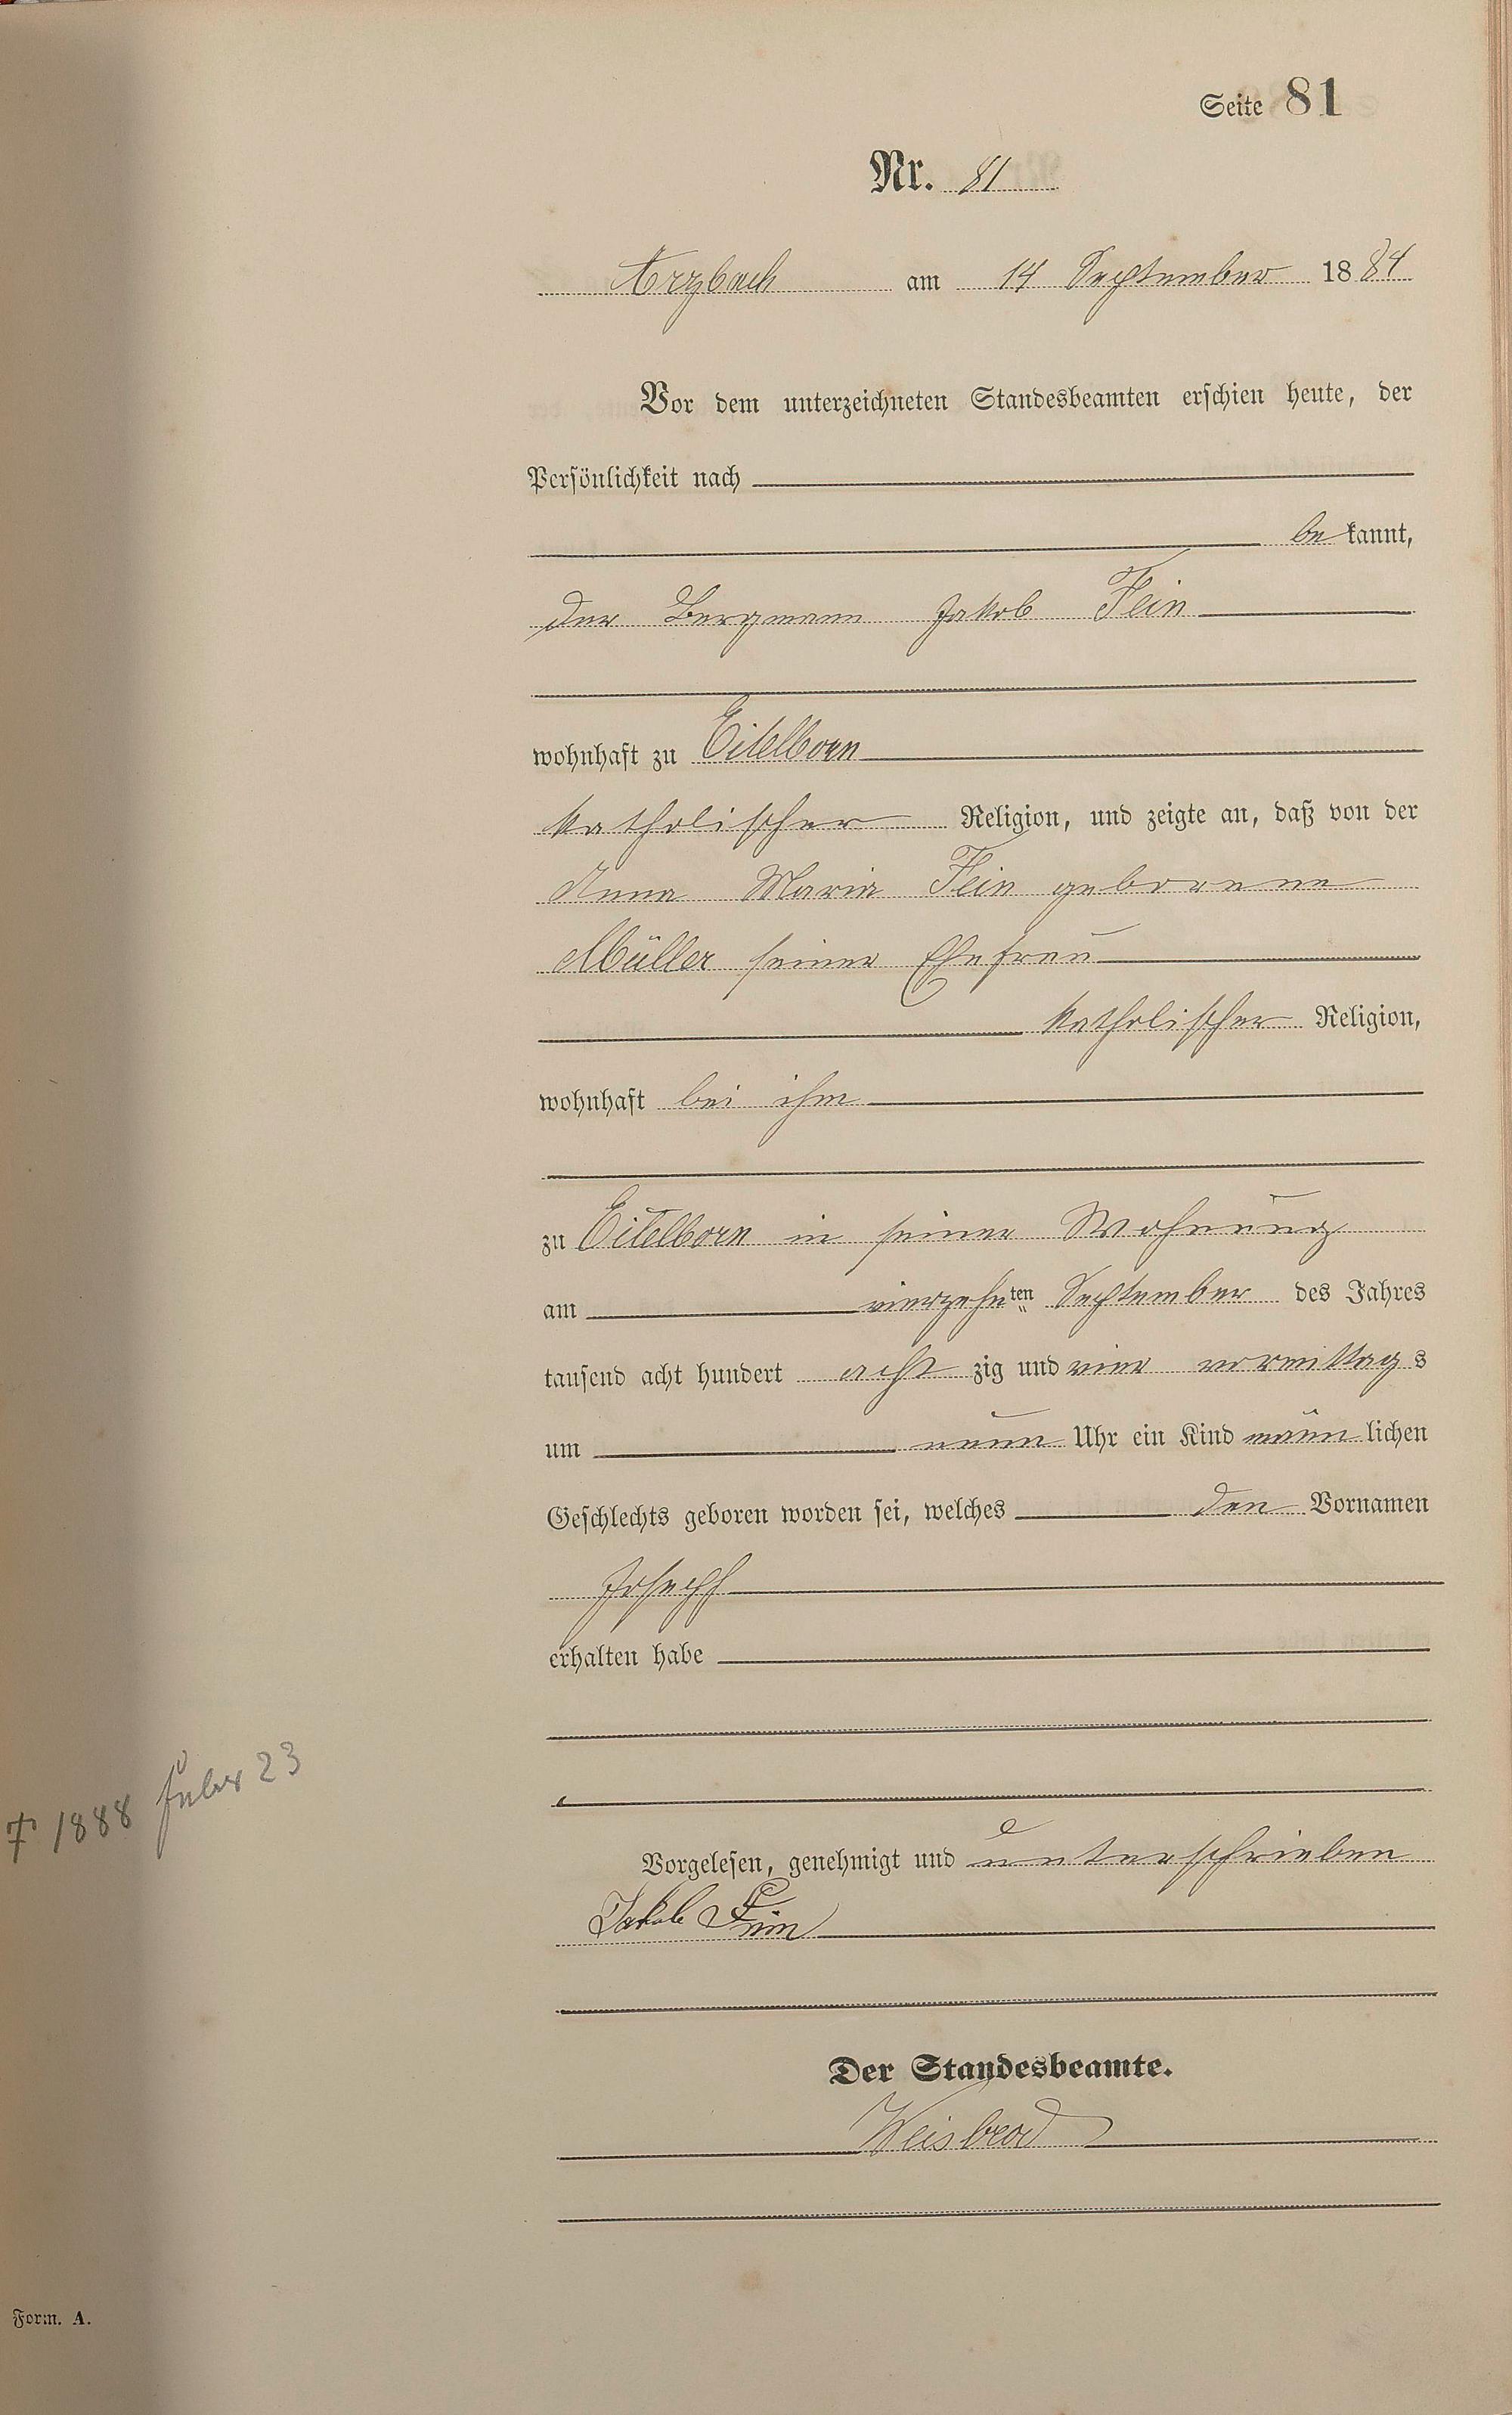 Seite 81
Nr. 81
Arzbach am 14 September 1884
Vor dem unterzeichneten Standesbeamten erschien heute, der
Persönlichkeit nach
be kannt,
der Bergmann Jakob Fein
wohnhaft zu Eitelborn
katholischer Religion, und zeigte an, daß von der
Anna Maria Fein geborene
Müller seiner Ehefrau
katholischer Religion,
wohnhaft bei ihm
zu Eitelborn in seiner Wohnung
am vierzehnten September des Jahres
tausend acht hundert acht zig und vier vormittag s
um neun Uhr ein Kind männ lichen
Geschlechts geboren worden sei, welches den Vornamen
Joseph
erhalten habe
† 1888 23
Vorgelesen, genehmigt und unterschrieben
Jakob Fein
Der Standesbeamte.
Weisbrod
Form. A.